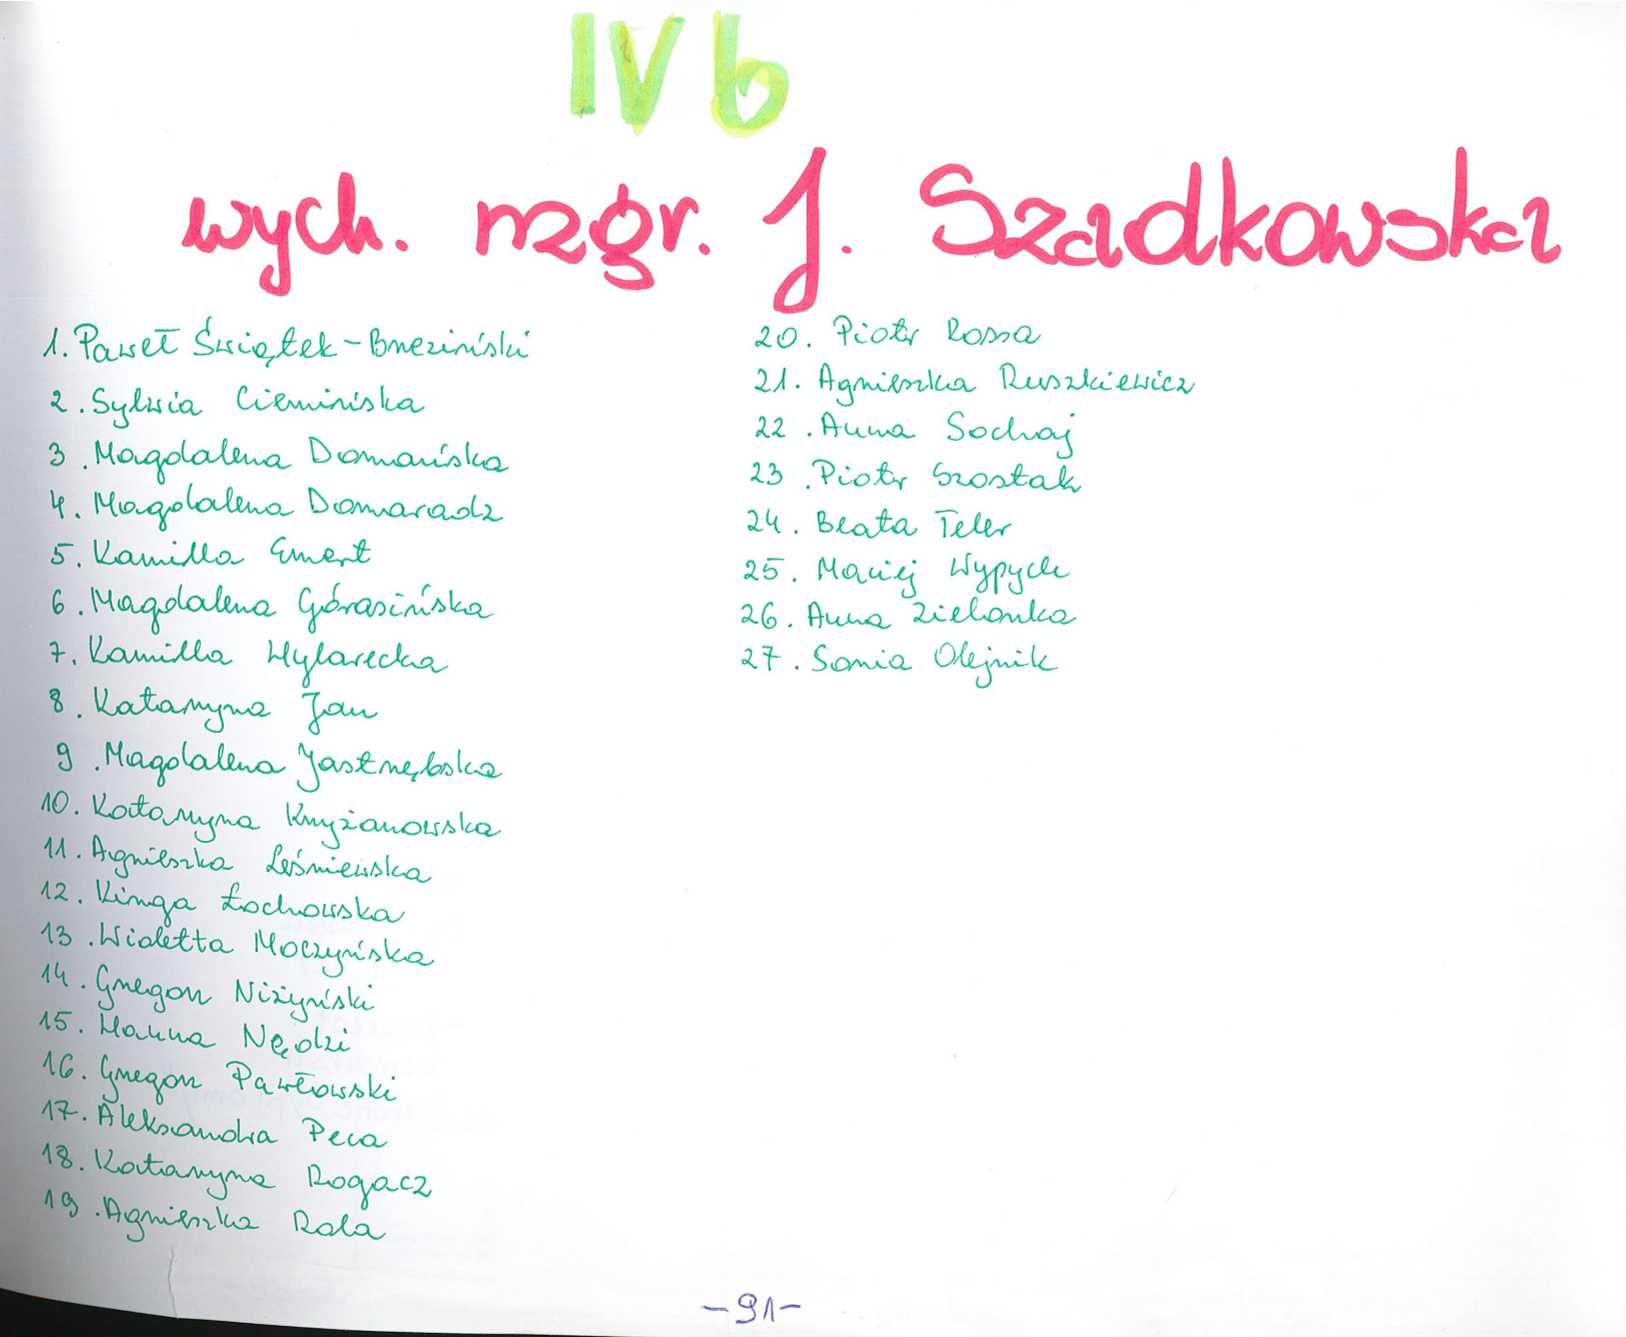 IV b
wych. mgr. J. Szadkowska
1. Paweł Świątek-Brzeziński
2. Sylwia Ciemińska
3. Magdalena Domańska
4. Magdalena Domaradz
5. Kamilla Emert
6. Magdalena Górasińska
7. Kamilla Hylarecka
8. Katarzyna Jan
9. Magdalena Jastrzębska
10. Katarzyna Krzyżanowska
11. Agnieszka Leśniewska
12. Kinga Łochowska
13. Wioletta Moczyńska
14. Grzegorz Niżyński
15. Hanna Nędzi
16. Grzegorz Pawłowski
17. Aleksandra Peca
18. Katarzyna Rogacz
19. Agnieszka Rola
20. Piotr Rossa
21. Agnieszka Ruszkiewicz
22. Anna Sochaj
23. Piotr Szostak
24. Beata Teler
25. Maciej Wypych
26. Anna Zielonka
27. Sonia Olejnik
-91-